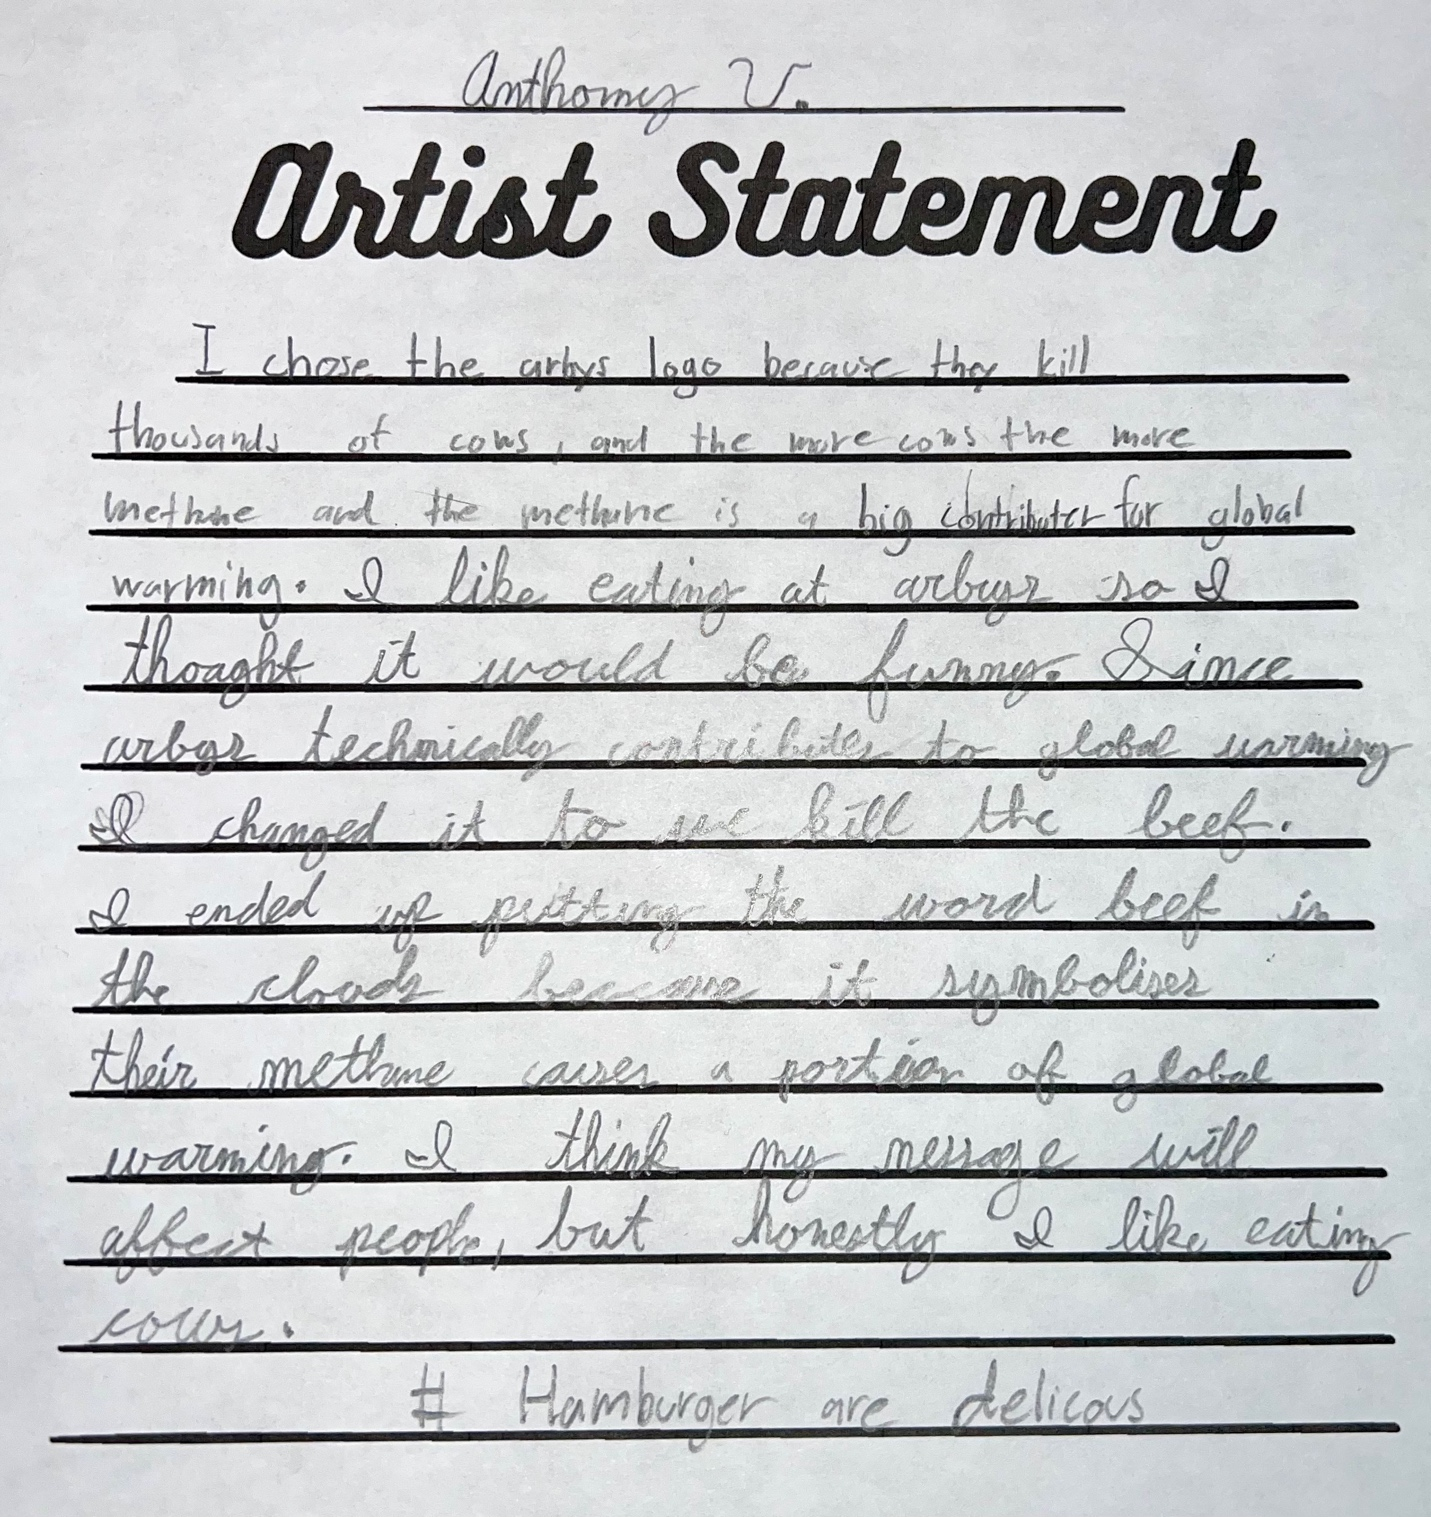 Anthony V.
Artist Statement
I chose the arbys logo because they kill
thousands of cows, and the more cows the more
methane and the methane is a big contributer for global
warming. I like eating at arbys so I
thoaght it would be funny. Since
arbys technically contributes to global warming
I changed it to we kill the beef.
I ended up putting the word beef in
the clouds because it symbolises
their methane causes a portion of global
warming. I think my message will
affect people, but honestly I like eating
cows.
# Hamburger are delicous